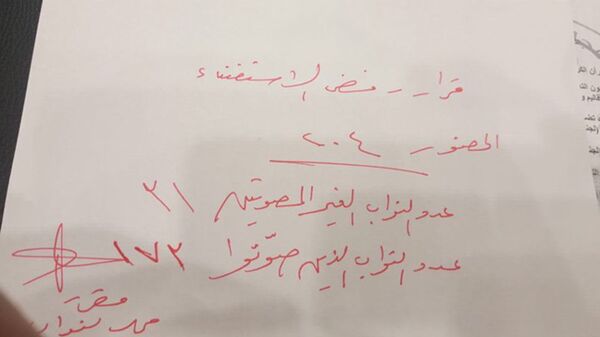 قرار رفض الاستفتاء
الحضور ٢٠٤
عدد النواب الغير المصوتين ٣١
عدد النواب الذين صوّتوا ١٧٣
مقرر